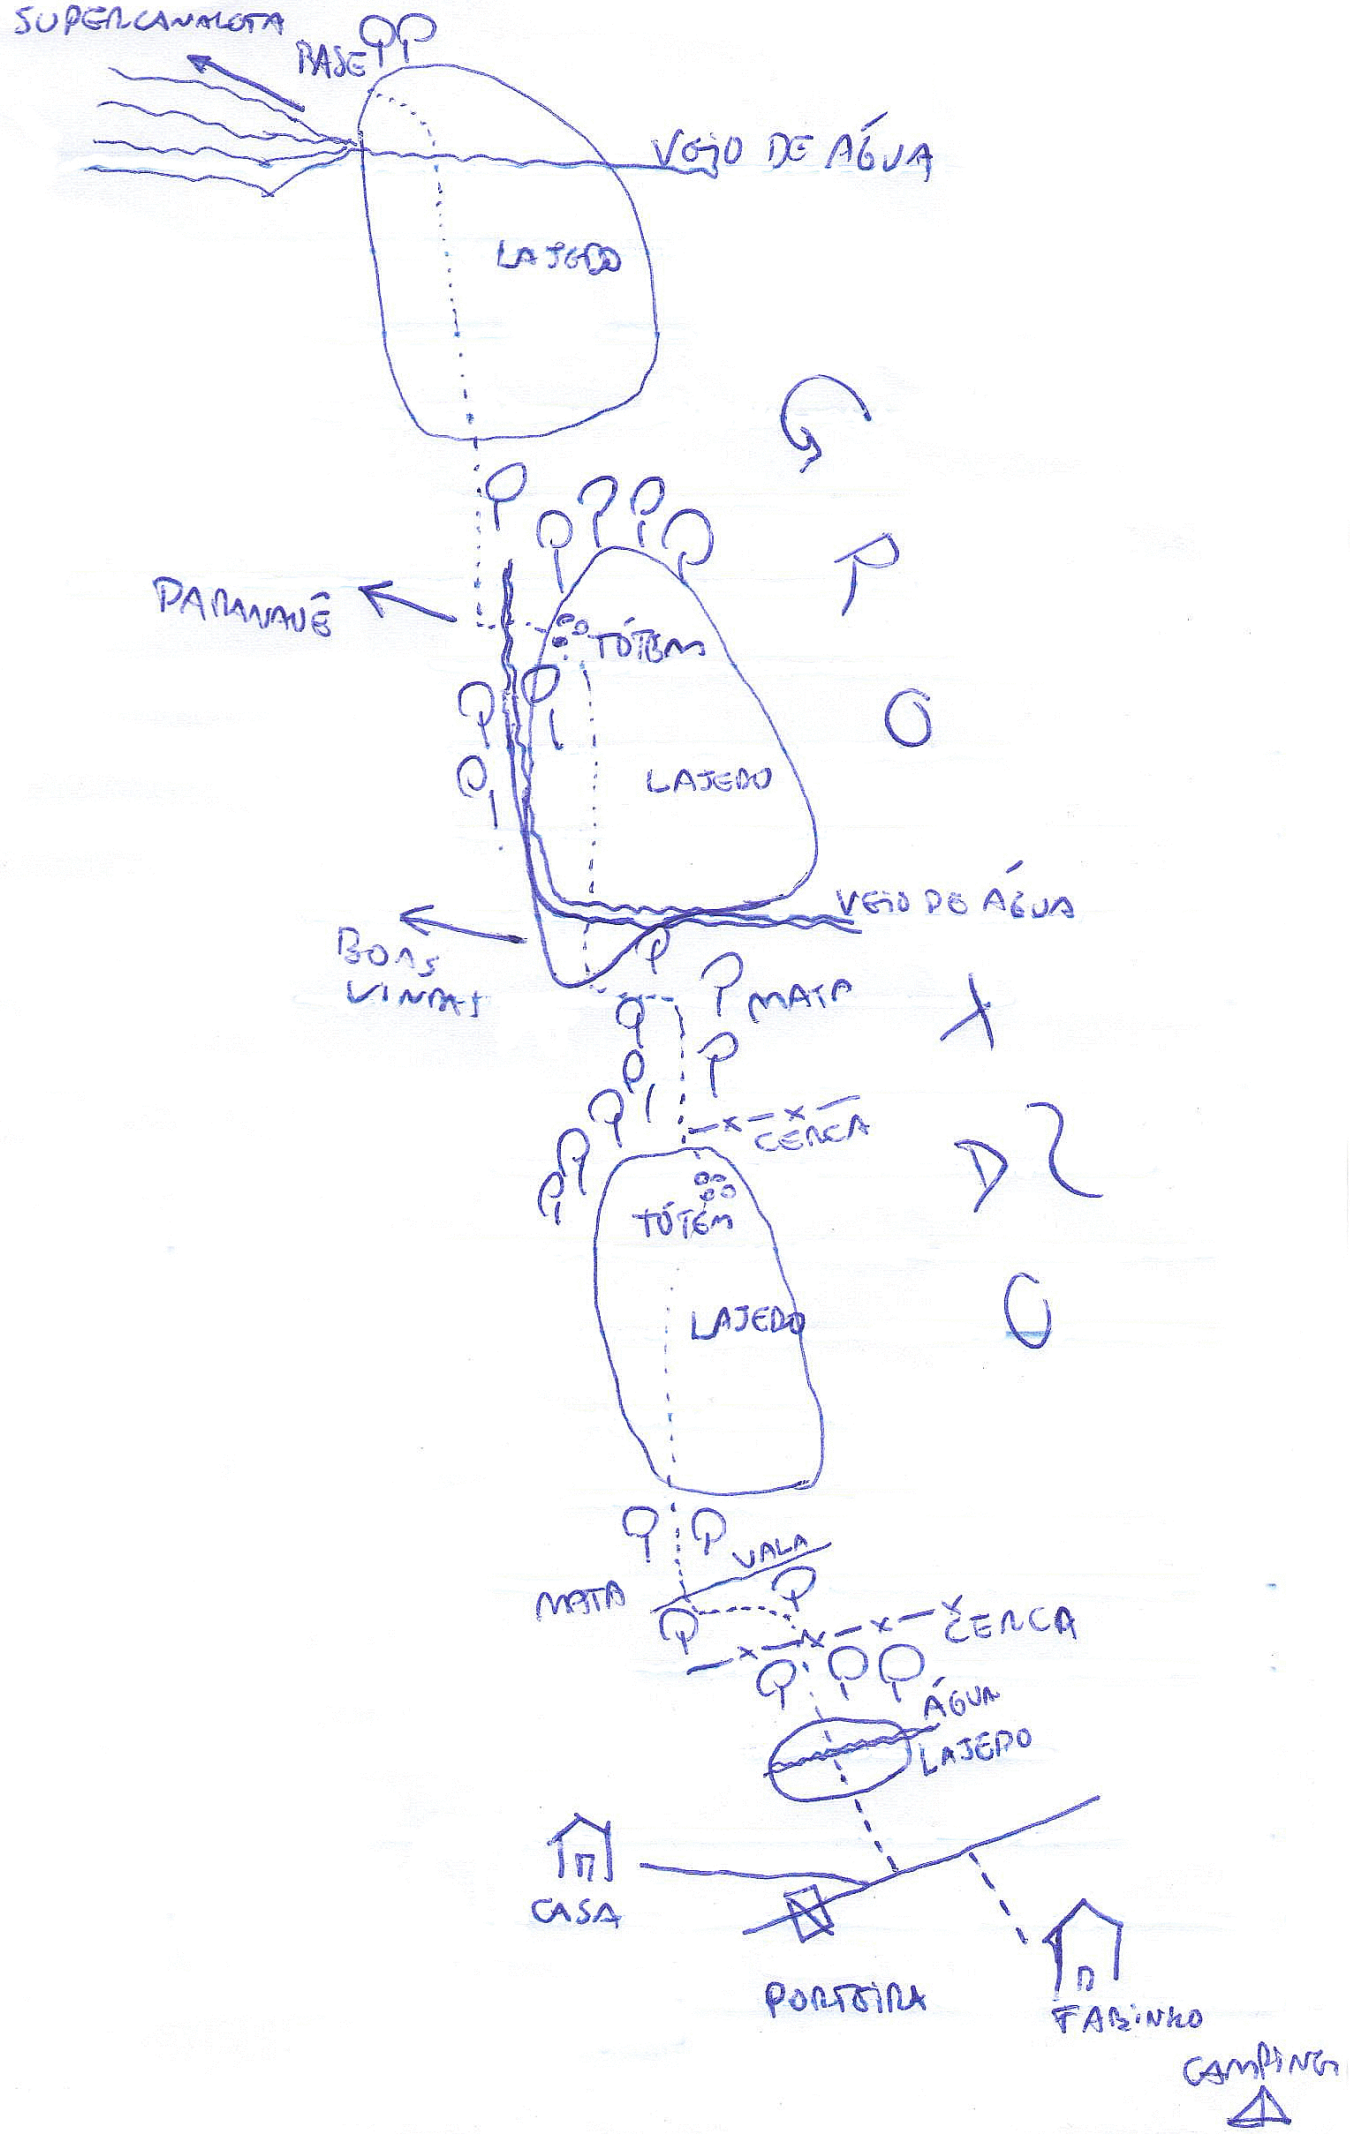 SUPERCANALETA
BASE
VEIO DE ÁGUA
LAJEDO
PARANAUÊ
TÓTEM
LAJEDO
VEIO DE ÁGUA
BOAS
VINDAS
MATA
CERCA
TÓTEM
LAJEDO
VALA
MATA
CERCA
ÁGUA
LAJEDO
CASA
PORTEIRA
FABINHO
CAMPING